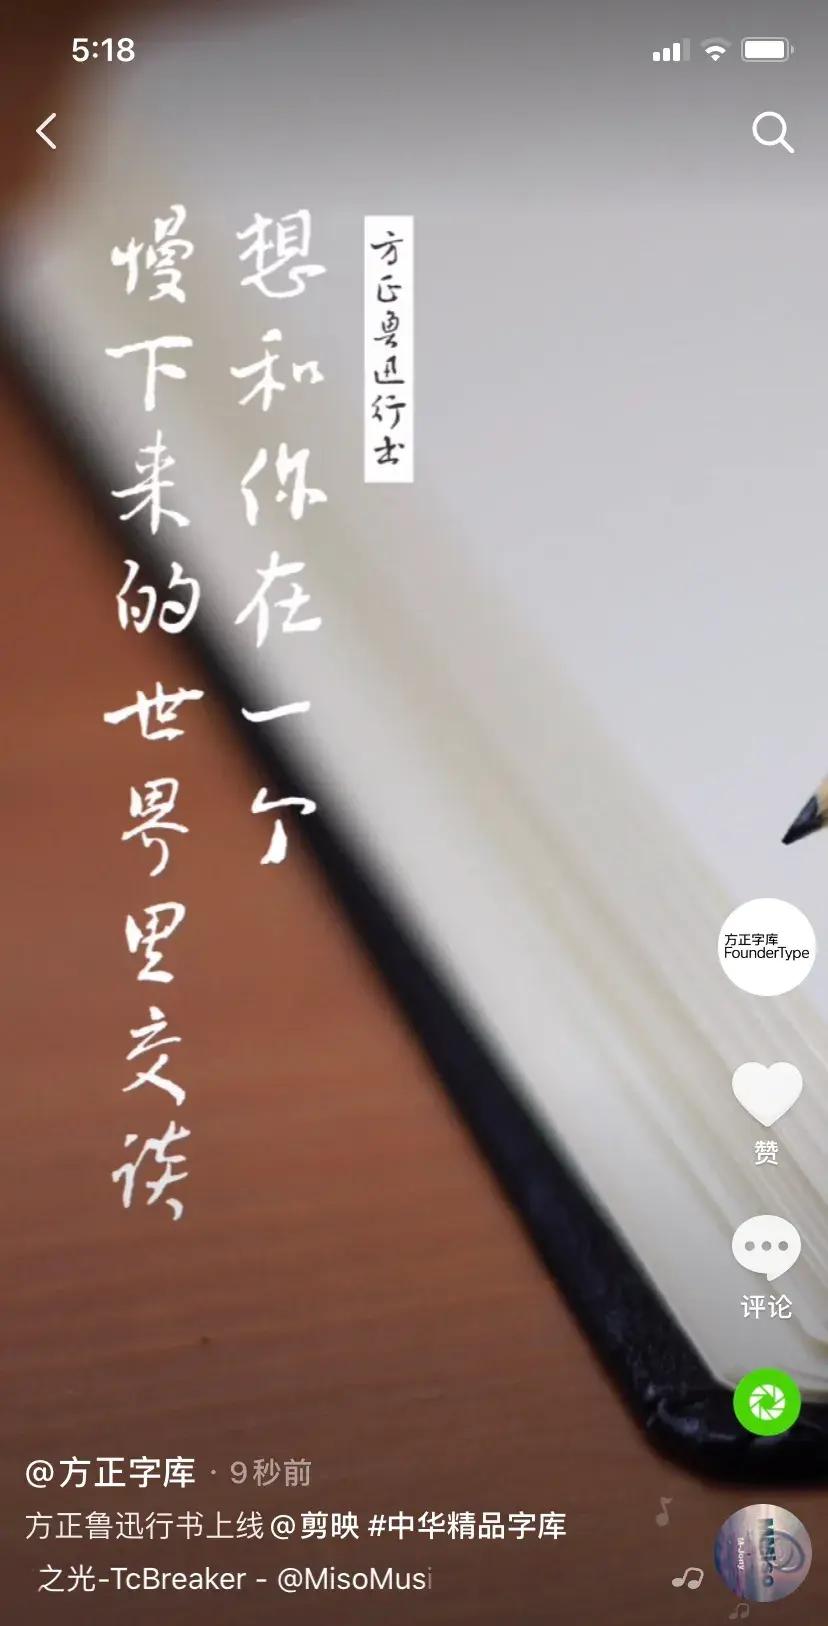 5:18
方正鲁迅行书
想和你在一个
慢下来的世界里交谈
方正字库
FounderType
赞
评论
@方正字库 · 9秒前
方正鲁迅行书上线@剪映 #中华精品字库
之光-TcBreaker - @MisoMusi